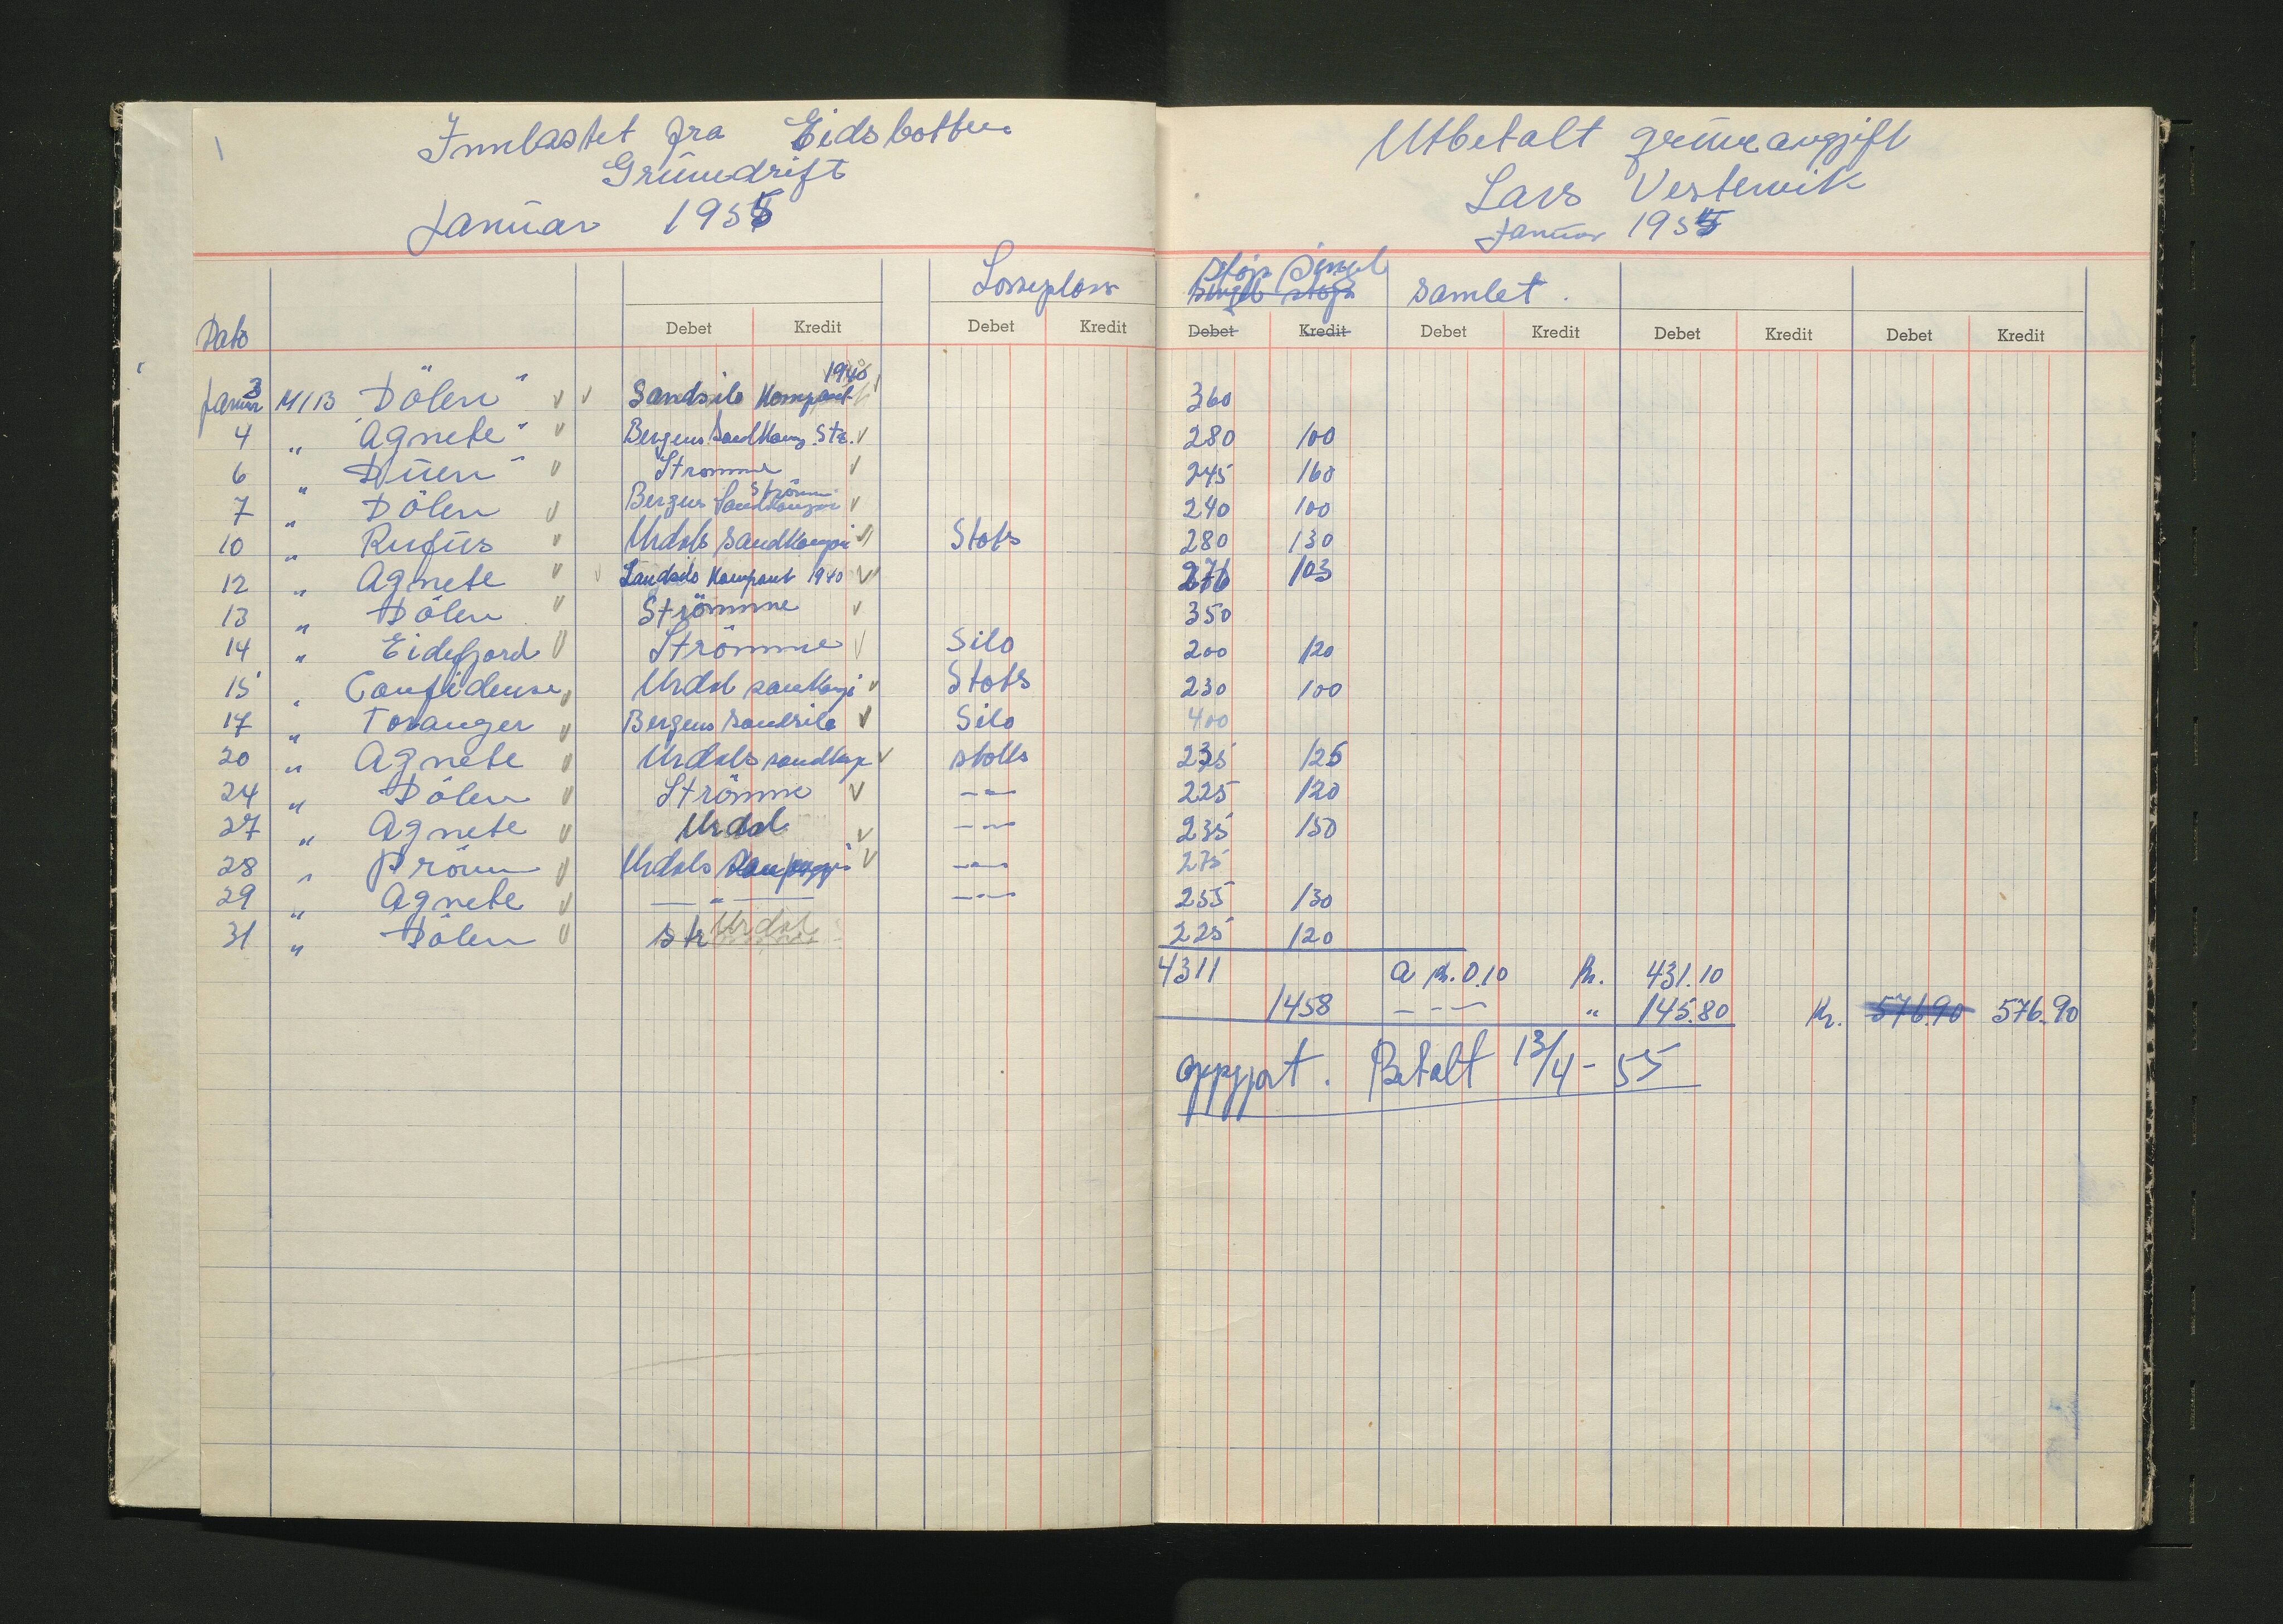 1
Innlastet fra Eidsbotten
Grunndrift
Januar 1955
Losseplass
Dato Debet Kredit Debet Kredit
Januar 3 M/B "Dölen" Sandsilo Kompani 1940
4 " "Agnete" Bergens Sandkomp. Str.
6 " Duen" Strømme
7 " Dölen Bergens Sandkompani Strömm
10 " Rufus Urdals Sandkompi Stots
12 " Agnete Sandsilo Kompani 1940
13 " Dölen Strömme
14 " Eidefjord Strömme Silo
15 " Confidense Urdal sankompi Stots
17 " Toranger Bergens Sandsilo Silo
20 " Agnete Urdals sandkop stotts
24 " Dölen Strömme — " —
27 " Agnete Urdal — " —
28 " Pröven Urdals — " —
29 " Agnete — " — — " —
31 " Dölen str Urdal
Utbetalt grunnavgift
Lars Vestervik
Januar 1955
Støp Singel
Singel Støp Samlet.
Debet Kredit Debet Kredit Debet Kredit Debet Kredit
360
280 100
245 160
240 100
280 130
276 103
350
200 120
230 100
400
235 125
225 120
235 150
275
255 130
225 120
4311 a kr. 0.10 kr. 431.10
1458 — " — " 145.80 Kr. 576.90 576.90
oppgjort. Betalt 13/4-55